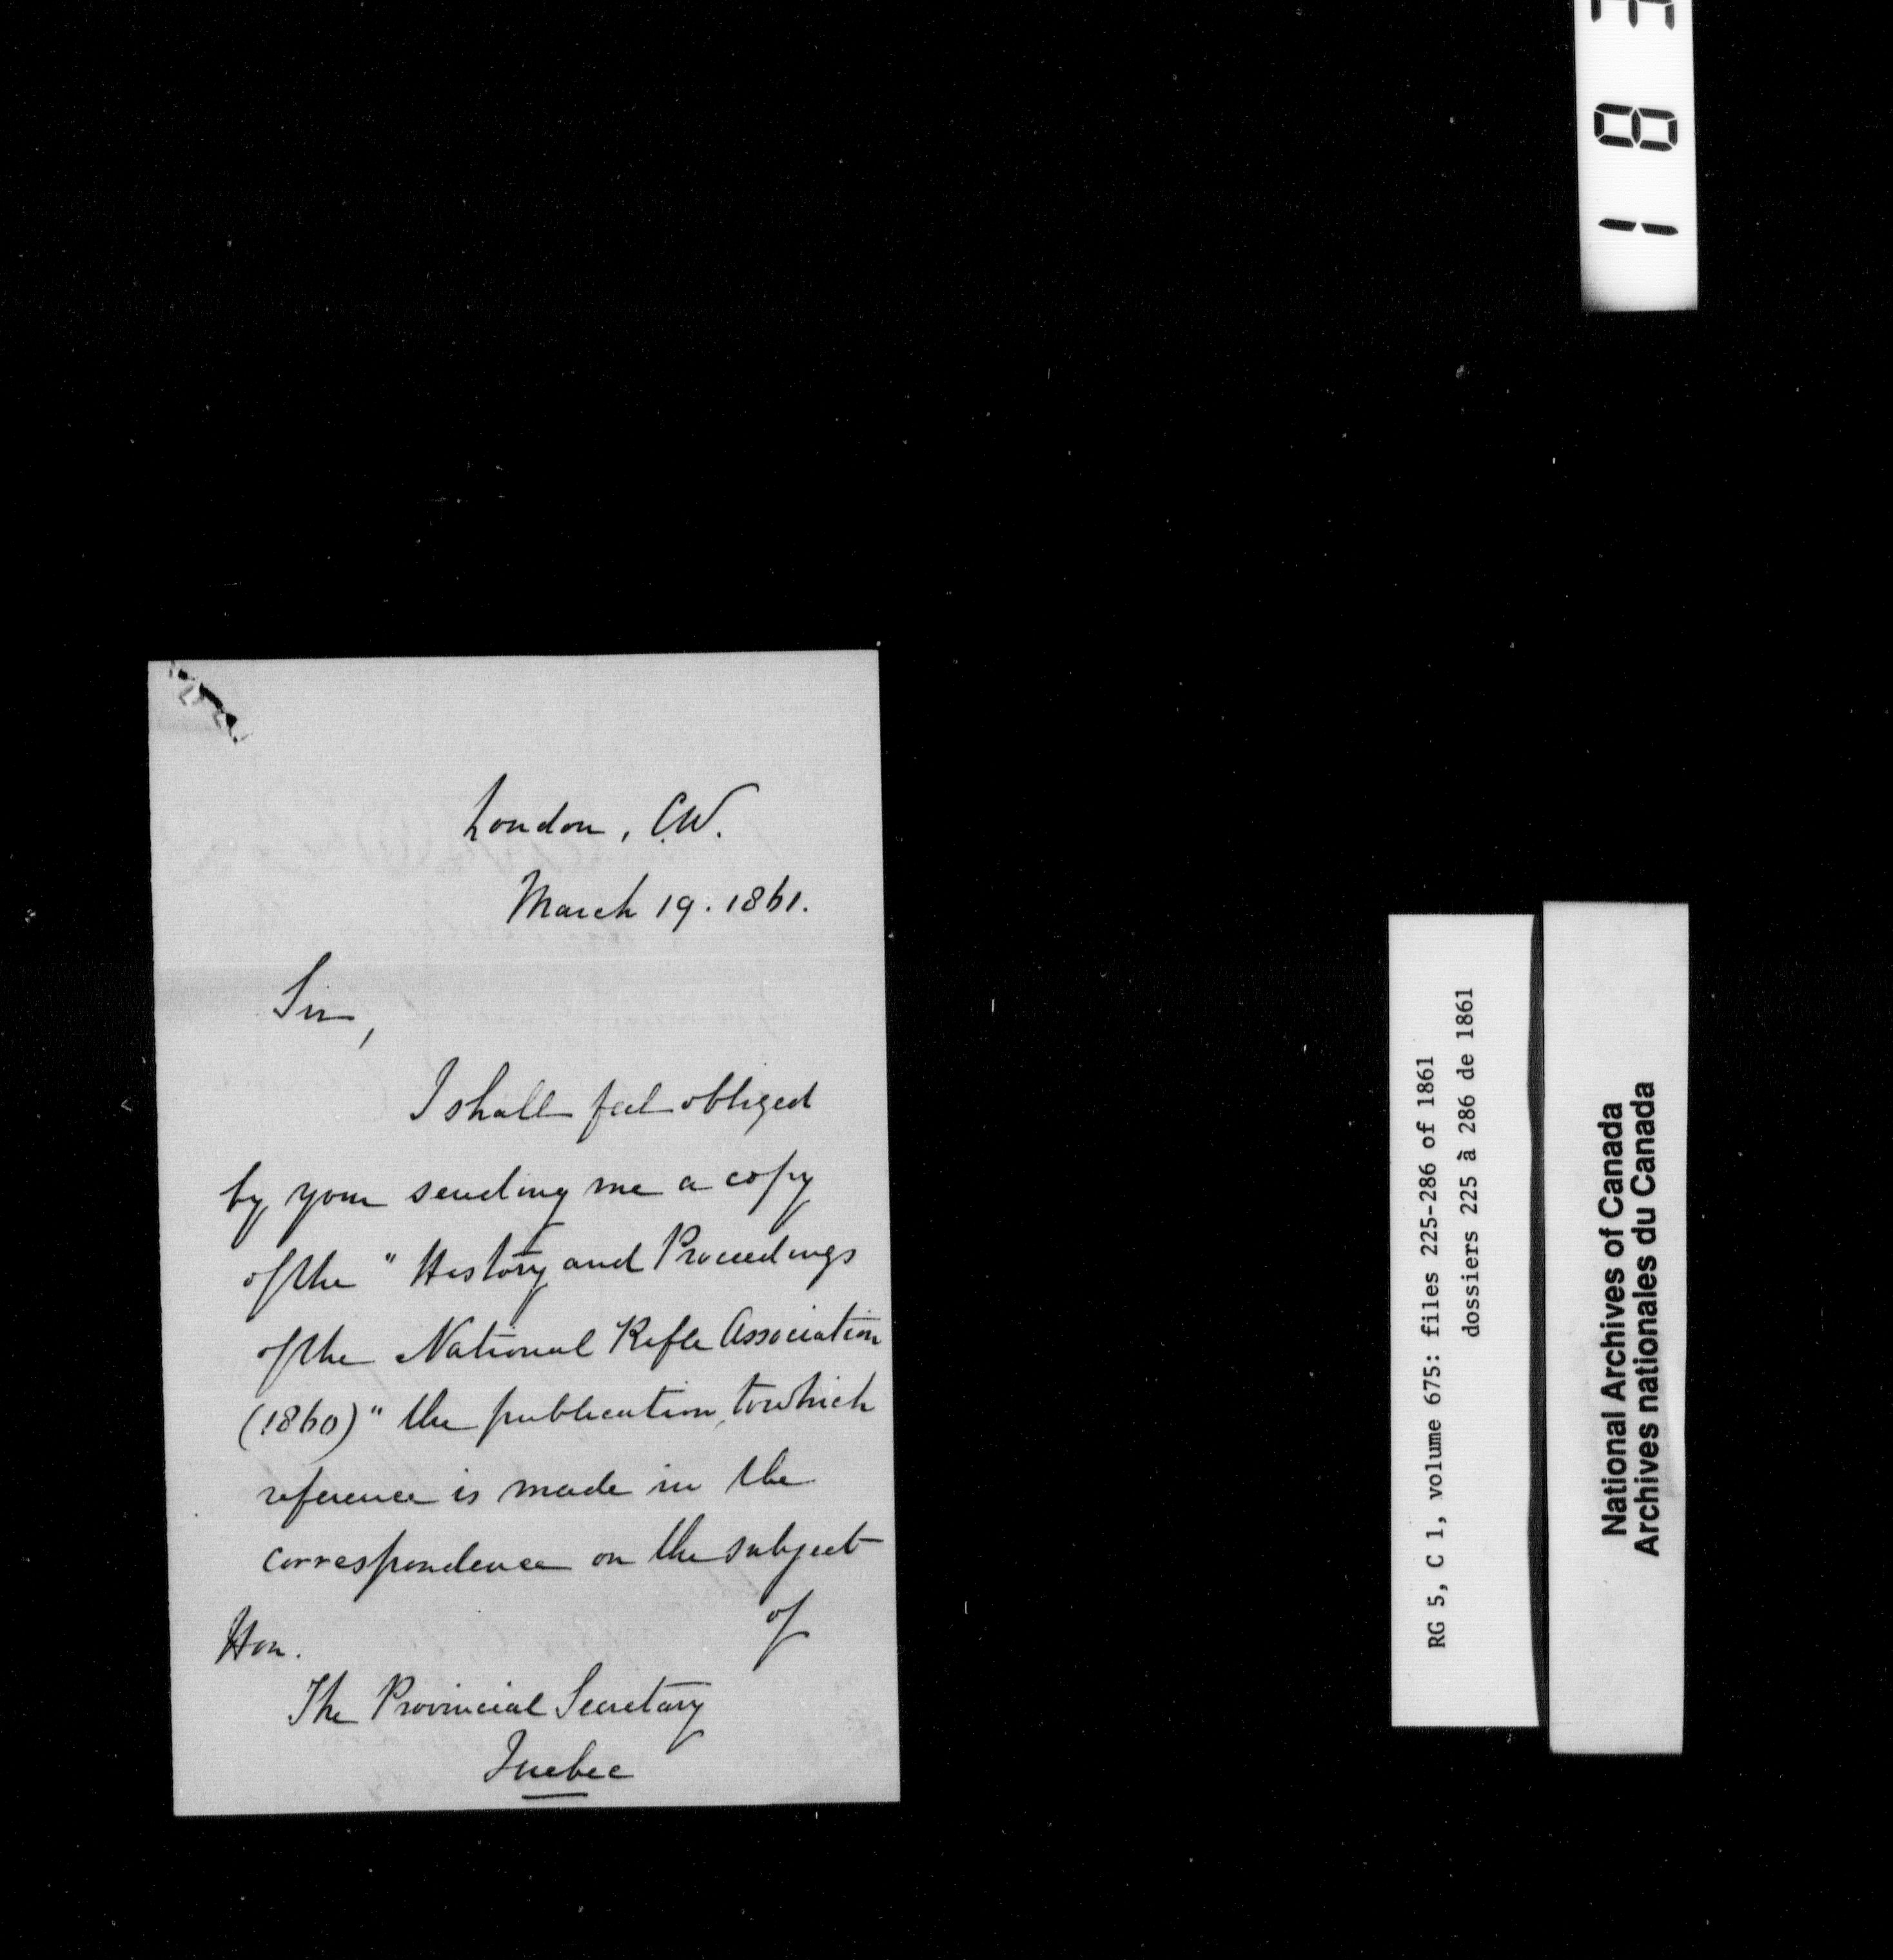 London, C.W.
March 19. 1861.
Sir,
I shall feel obliged
by your sending me a copy
of the "History and Proceedings
of the National Rifle Association
(1860)" the publication, to which
reference is made in the
correspondence on the subject
of
Hon.
The Provincial Secretary
Quebec
RG 5, C 1, volume 675: files 225-286 of 1861
dossiers 225 à 286 de 1861
National Archives of Canada
Archives nationales du Canada
1 8 3